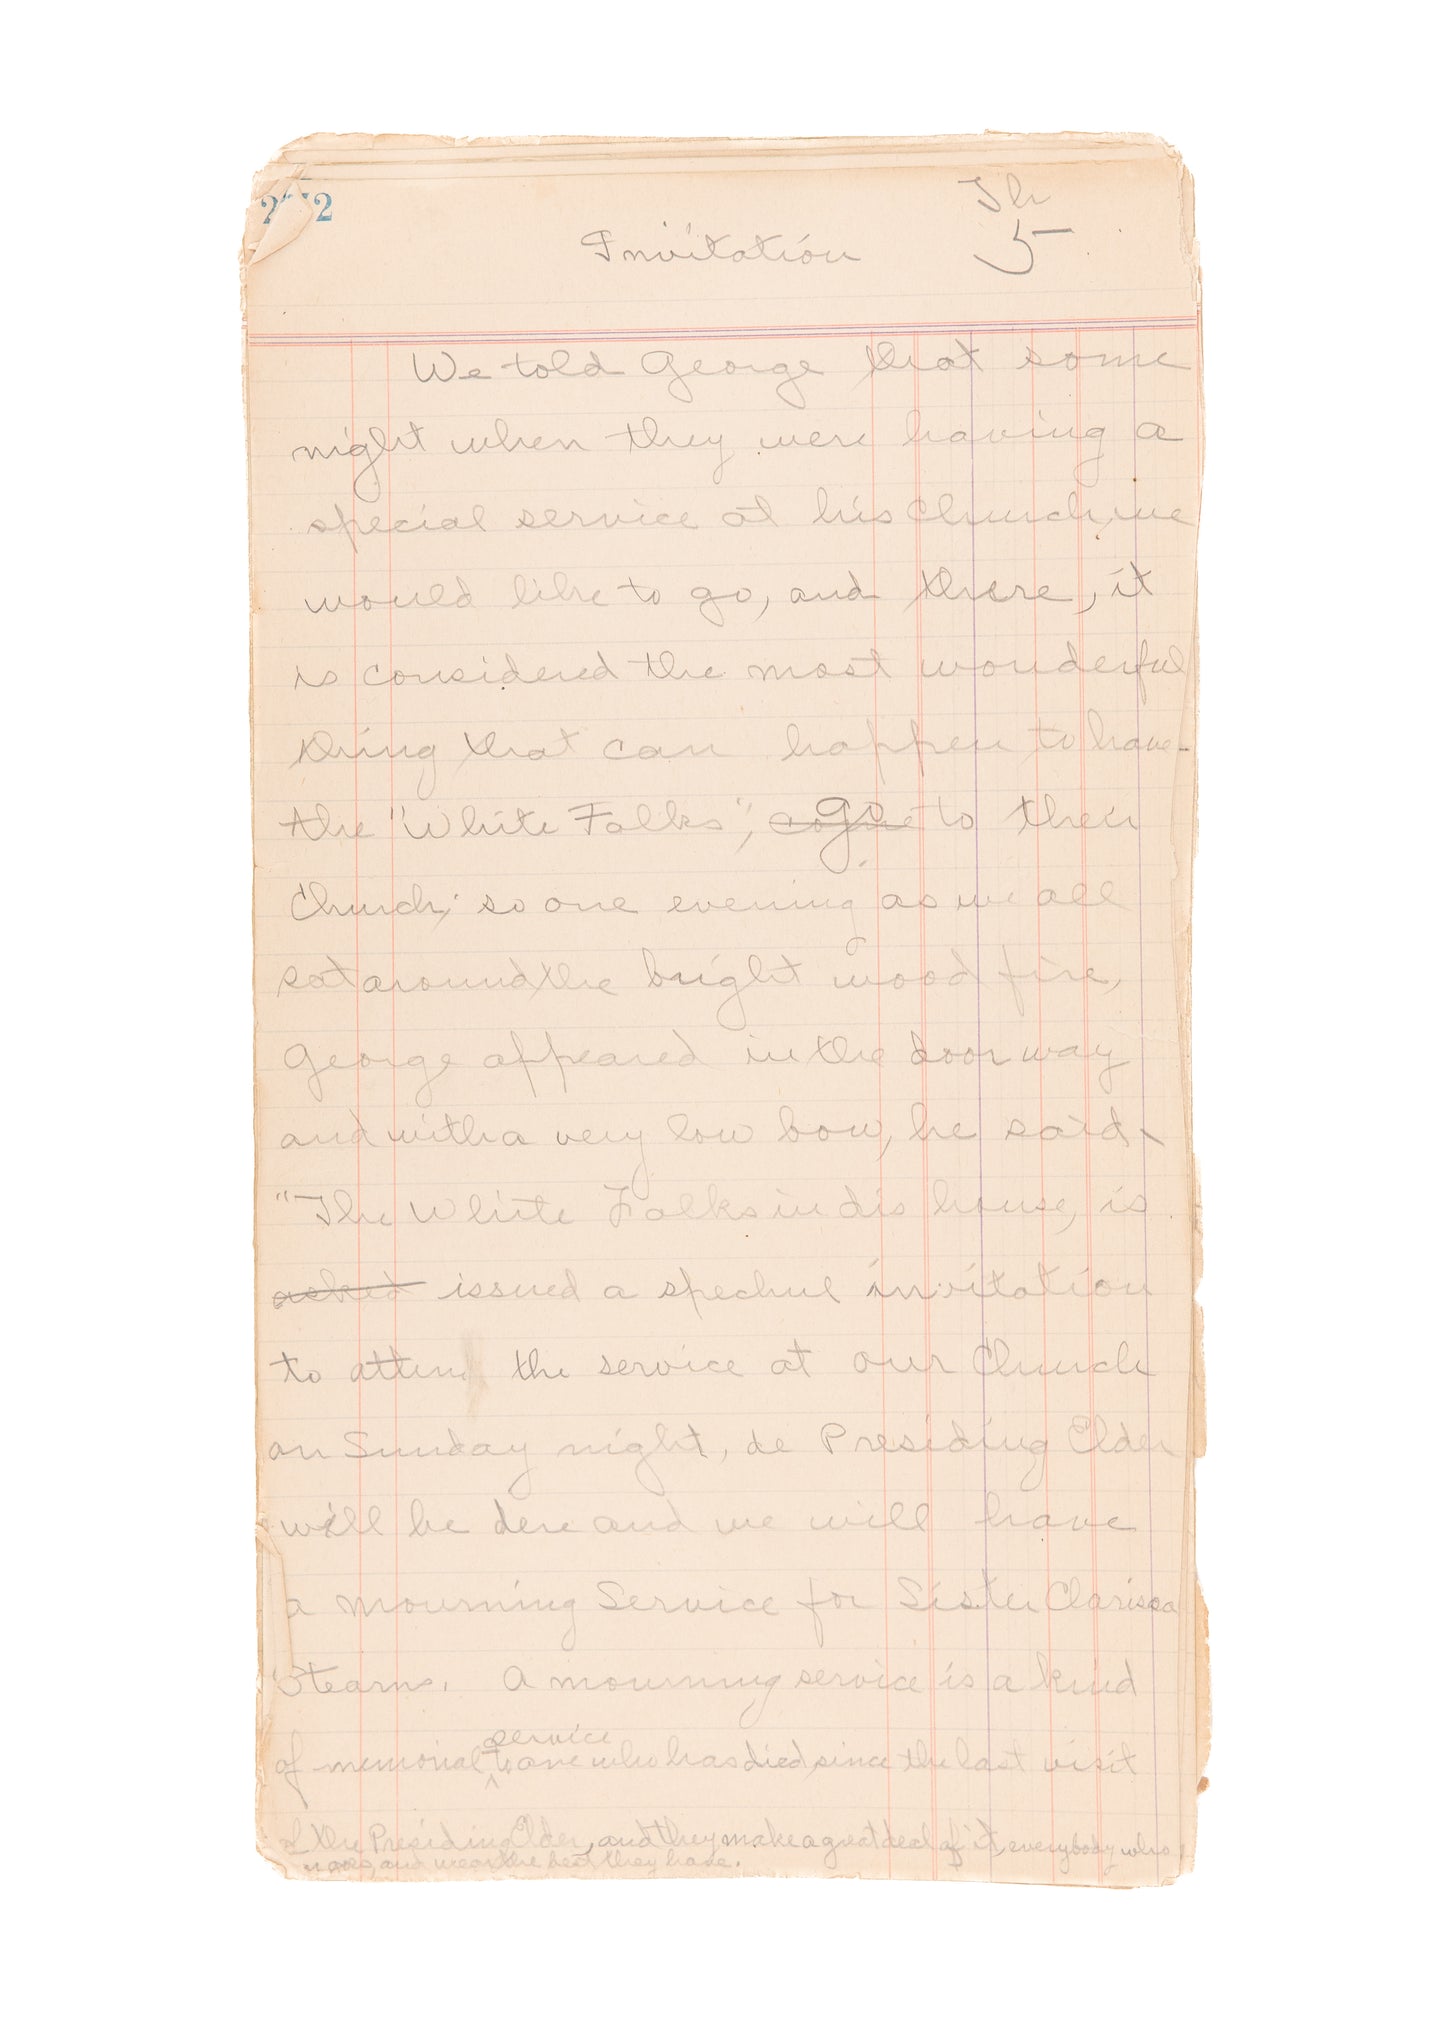 2 2
Th
Invitation
5
We told George that some
night when they were having a
special service at his Church, we
would like to go, and there, it
is considered the most wonderful
thing that can happen to have
the "White Folks", come go to their
Church; so one evening as we all
sat around the bright wood fire,
George appeared in the doorway
and with a very low bow, he said
"The White Folks in dis house, is
asked issued a spechul invitation
to atten the service at our Church
on Sunday night, de Presiding Elder
will be dere and we will have
a mourning Service for Sister Clarissa
Stearns. A mourning service is a kind
service
of memorial to one who has died, since the last visit
of the Presiding Elder, and they make a great deal of it, everybody who
goes, and wear the best they have.